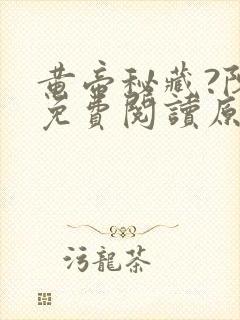 黄帝秘藏?阝
免費閱讀原
污龍茶